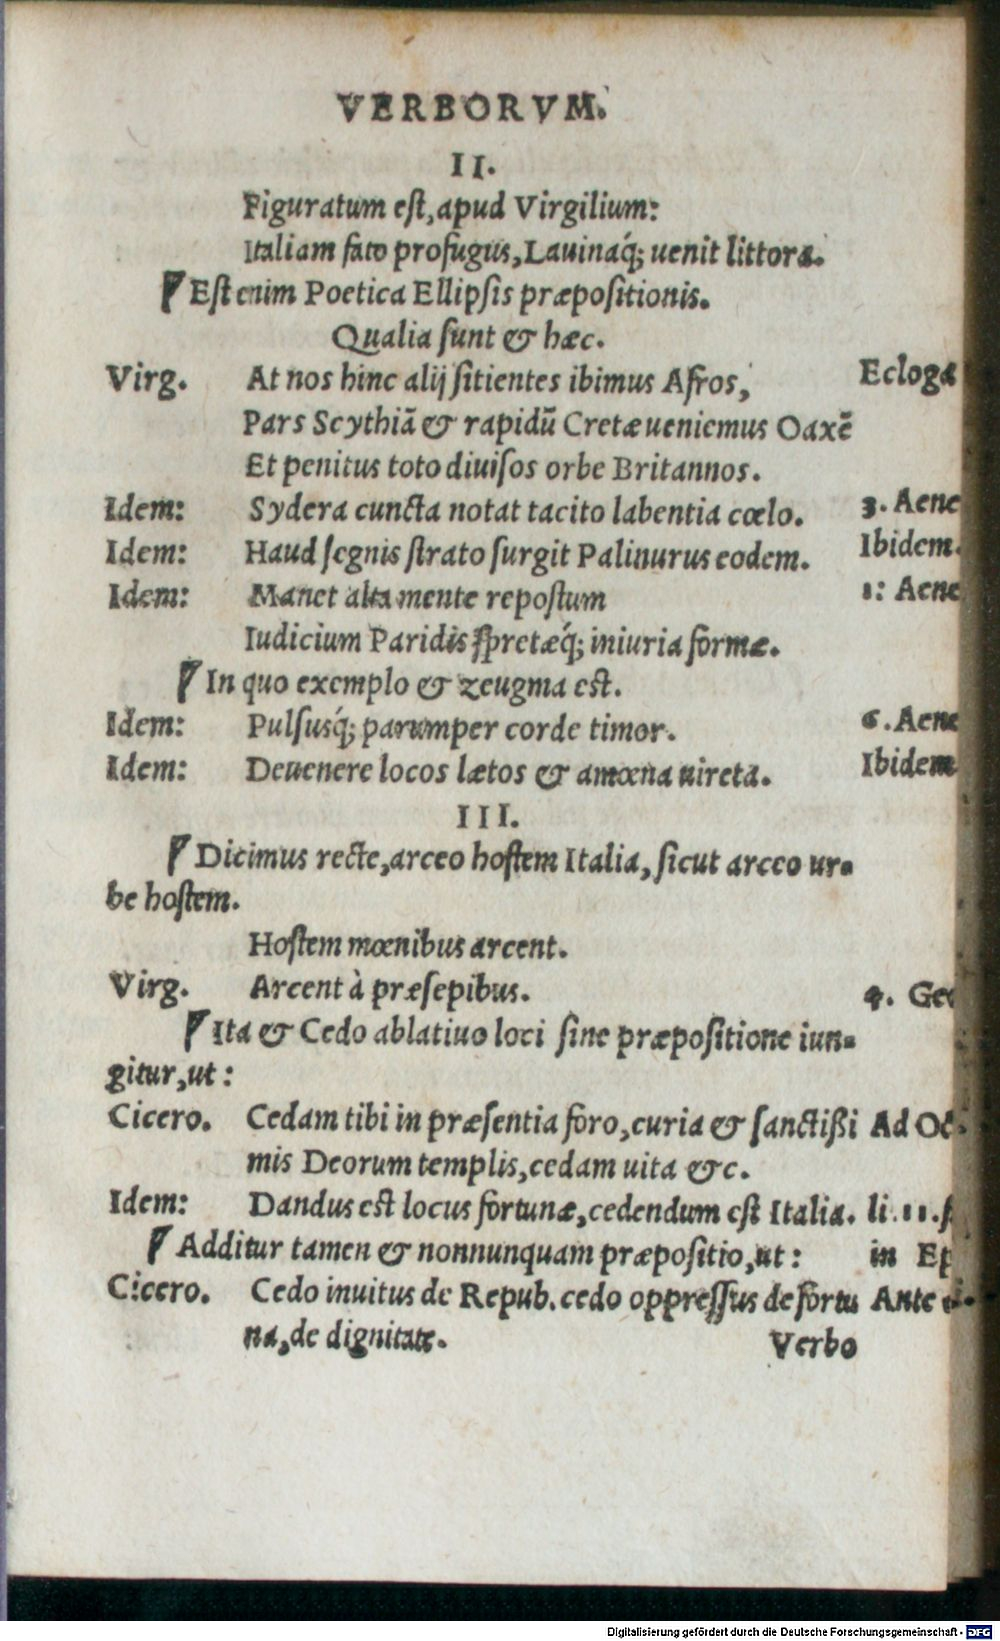 VERBORVM.
II.
Figuratum eſt, apud Virgilium:
Italiam fato profugus, Lauinaq́; uenit littora.
¶ Eſt enim Poetica Ellipſis præpoſitionis.
Qualia ſunt & hæc.
Virg. At nos hinc alij ſitientes ibimus Afros, Ecloga
Pars Scythiā & rapidū Cretæ ueniemus Oaxē
Et penitus toto diuiſos orbe Britannos.
Idem: Sydera cuncta notat tacito labentia cœlo. 3. Aene
Idem: Haud ſegnis ſtrato ſurgit Palinurus eodem. Ibidem.
Idem: Manet alta mente repoſtum 1: Aene
Iudicium Paridis ſpretæq́; iniuria formæ.
¶ In quo exemplo & zeugma eſt.
Idem: Pulſusq́; parumper corde timor. 6. Aene
Idem: Deuenere locos lætos & amœna uireta. Ibidem
III.
¶ Dicimus recte, arceo hoſtem Italia, ſicut arceo ur-
be hoſtem.
Hoſtem mœnibus arcent.
Virg. Arcent à præſepibus. 4. Geo
¶ Ita & Cedo ablatiuo loci ſine præpoſitione iun-
gitur, ut:
Cicero. Cedam tibi in præſentia foro, curia & ſanctißi Ad Oc
mis Deorum templis, cedam uita &c.
Idem: Dandus eſt locus fortunæ, cedendum eſt Italia. li. 11.
¶ Additur tamen & nonnunquam præpoſitio, ut: in Ep
Cicero. Cedo inuitus de Repub. cedo oppreſſus de fortu Ante
na, de dignitate. Verbo
Digitalisierung gefördert durch die Deutsche Forschungsgemeinschaft - DFG